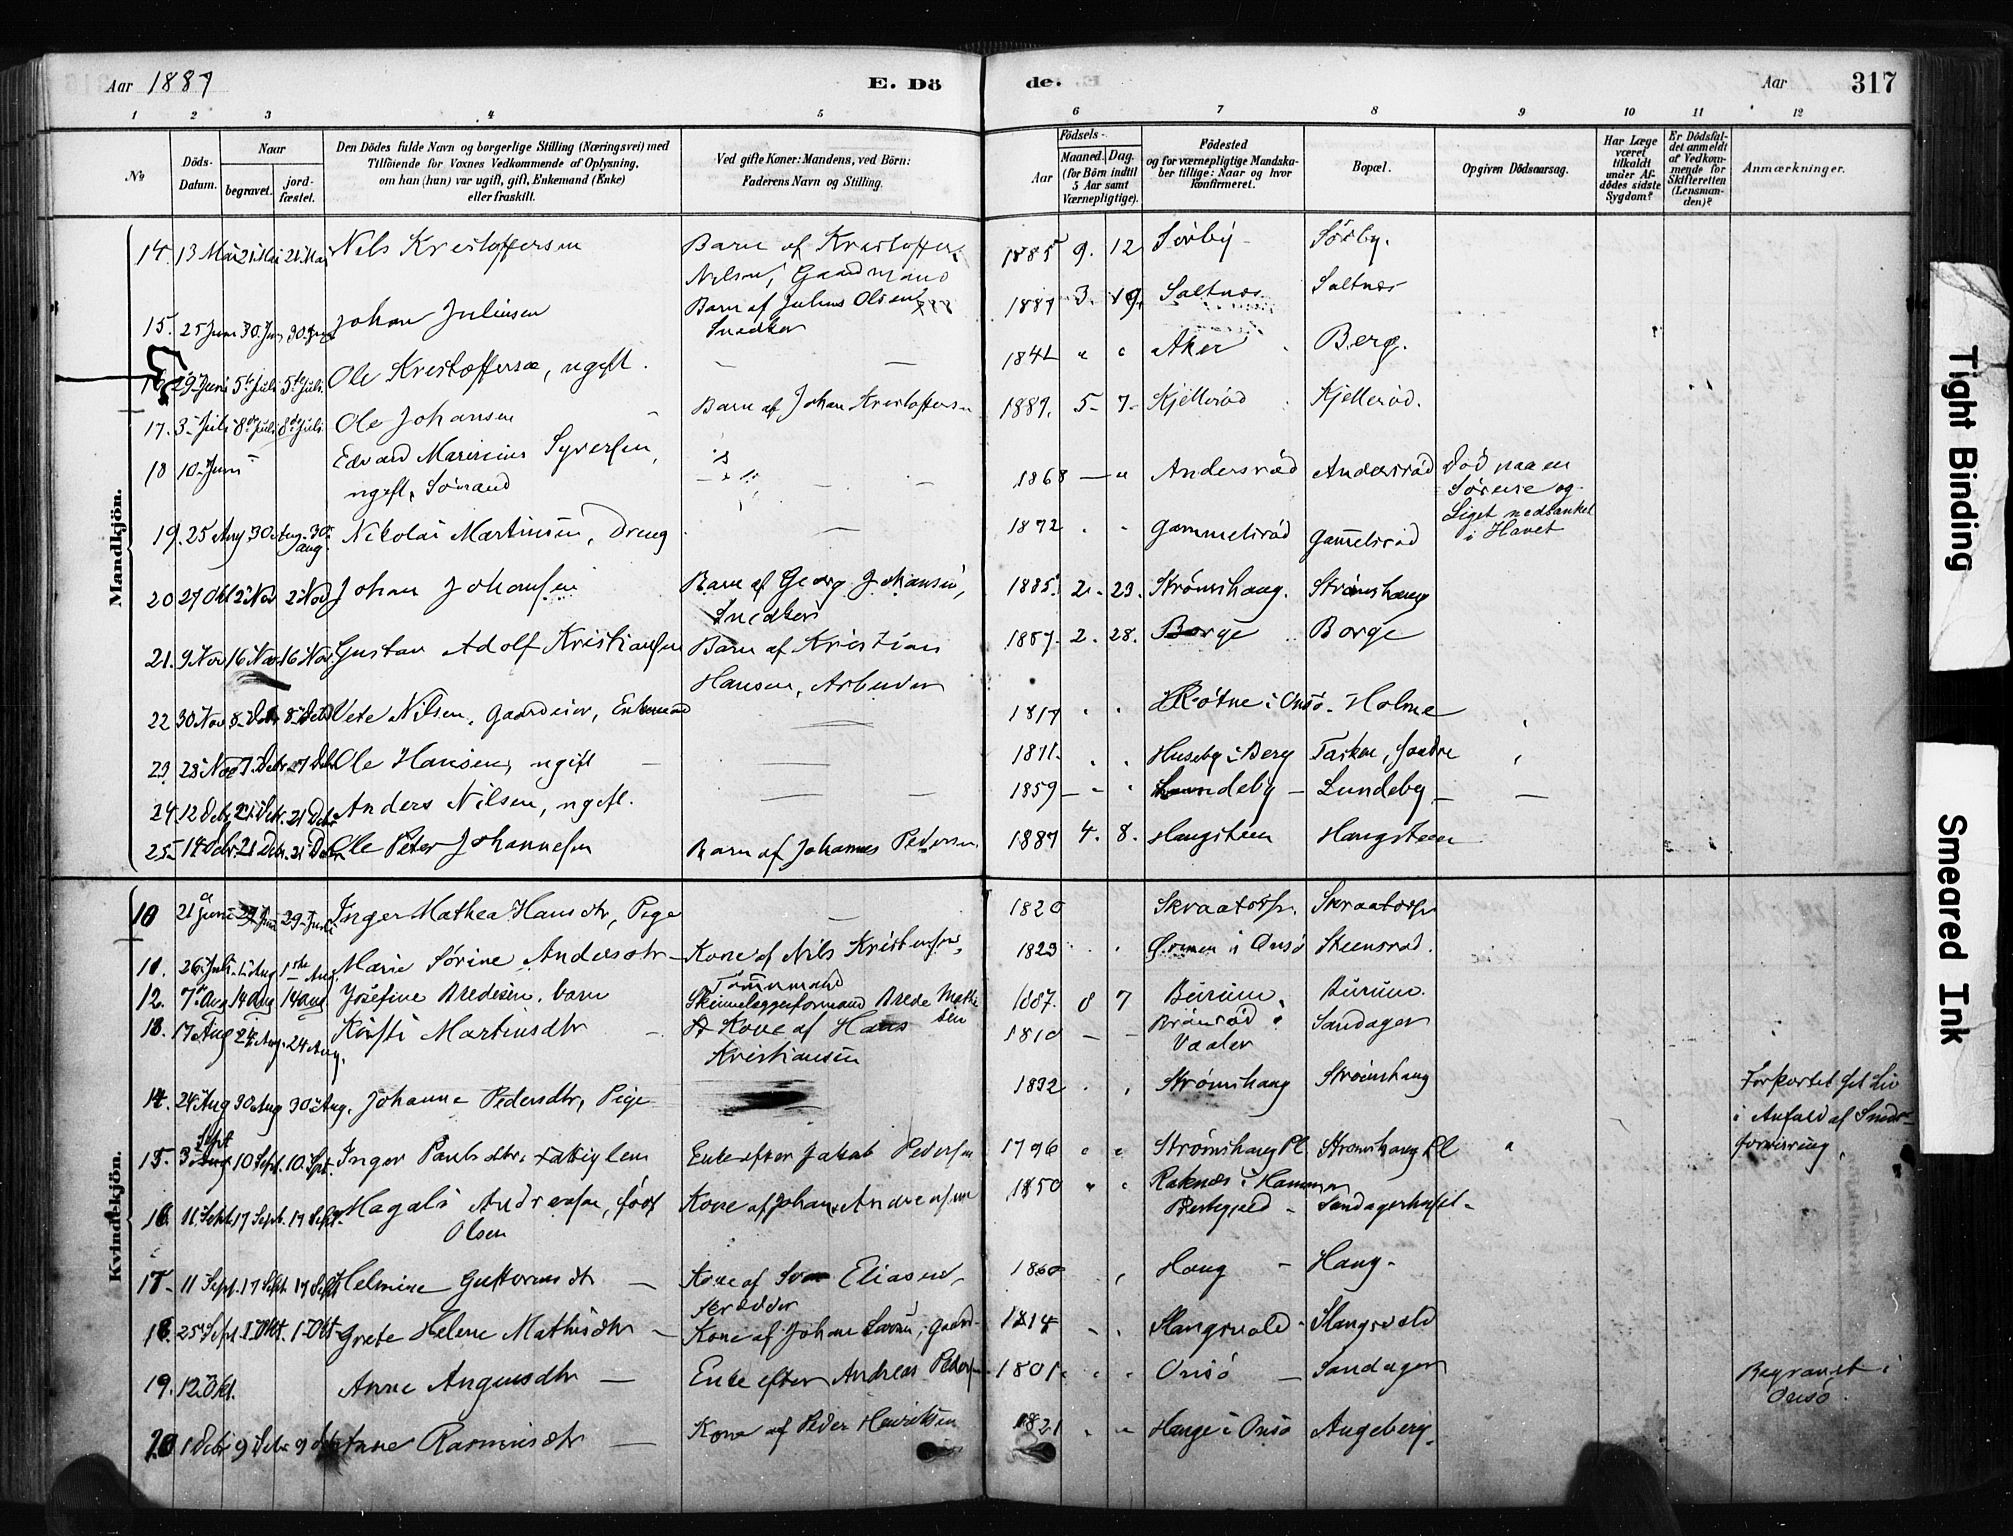 Aar 1887 E. Dö de. Aar 317
1 2 3 4 5 6 7 8 9 10 11 12
No Döds-Datum. Naar begravet. jordfæstet. Den Dödes fulde Navn og borgerlige Stilling (Næringsvei) med Tilföiende for Voxnes Vedkommende af Oplysning, om han (hun) var ugift, gift, Enkemand (Enke) eller fraskilt. Ved gifte Koner: Mandens, ved Börn: Faderens Navn og Stilling. Födsels- Aar Maaned. Dag. (for Börn indtil 5 Aar samt Værnepligtige). Födested og for værnepligtige Mandskaber tillige: Naar og hvor konfirmeret. Bopæl. Opgiven Dödsaarsag. Har Læge været tilkaldt under Afdödes sidste Sygdom? Er Dödsfaldet anmeldt af Vedkommende for Skifteretten (Lensmanden)? Anmærkninger.
Mandkjön.
14. 13 Mai 21 Mai 21. Mai Nils Kristoffersen Barn af Kristoffer Nilsen, Gaardmand 1885 9. 12 Sörby Sörby.
15. 25 Juni 30 Jun 30. Juni Johan Juliusen Barn af Julius Olsen Snedker 1887 3. 19. Saltnæs Saltnæs
16 29 Juni 5te Juli 5te Juli. Ole Kristoffersen, ugift. 1841 " " Aker Berg.
17. 3 Juli 8de Juli 8de Juli. Ole Johansen Barn af Johan Kristoffersen 1887. 5 7 Kjelleröd Kjelleröd.
18 10 Juni Edvard Marinius Syversen, ugift, Sömand 1868 Andersröd Andersröd Död paa en Söreise og Liget nedsænket i Havet
19. 25 Aug 30 Aug. 30 Aug. Nikolai Martinsen, Dreng 1872 Gammelsröd Gam̄elsröd
20 27 Okt 2 Nov 2 Nov Johan Johansen Barn af Georg Johansen, Snedker 1885 2. 23. Strömshaug. Strömshaug
21. 9 Nov 16 Nov 16 Nov. Gustav Adolf Kristiansen Barn af Kristian Hansen, Arbeider 1887 2. 28. Borge Borge
22 30 Nov 8 Debr 8 Debr Nilsen, Gaardeier, Enkemand 1817 i Onsö Holme
23 28 Nov 7. Debr 7 Debr Ole Hansen, ugift 1871. Huseby i Berg
24 12 Debr 21 Debr. 21 Debr Anders Nilsen, ugift. 1859 Lundeby Lundeby
25 14 Debr. 21 Debr. 21 Debr Ole Peter Johannesen Barn af Johannes Pedersen 1887 4. 8. Haugsteen Haugsteen
Kvindekjön.
10 21 Juni 29 Juni 29 Juni Inger Mathea Hansdtr, Pige 1820 Skraatorp. Skraatorp
11. 26 Juli 1 Aug 1ste Aug. Marie Sörine Andersdtr Kone af Nils Kristensen, Tömmermand 1823 i Onsö Steensröd.
12. 7 Aug 14 Aug 14 Aug Josefine Bredesen, barn Skinnelæggerformand Brede Mathisen 1887. 8 7 Burum. Burum.
13. 17 Aug 24 Aug. 24 Aug. Kirsti Martinsdtr Kone af Hans Kristiansen 1810 Brönröd i Vaaler Sandager
14. 24 Aug 30 Aug 30 Aug. Johanne Pedersdtr, Pige 1832 Strömshaug Strömshaug Forkortet sit Liv i Anfald af Sindsforvirring.
15. 3 Sept 10 Sept. 10. Sept. Inger Paulsdtr, Fattiglem Enke efter Jakob Pedersen 1796 Strömshaug Pl. Strömshaug Pl
16. 11 Sept. 17 Sept. 17 Sept. Magali Andreasen, född Olsen Kone af Johan Andreasen 1850 Raknæs i Hammer Præstegjeld
17 11 Sept. 17 Sept. 17 Sept Helmine Guttormsdtr Kone af Eliasen, Skrædder 1860 Haug Haug.
18. 25 Sept 1 Okt. 1 Okt. Grete Helene Mathisdtr Kone af Johan 1814 Slangsvold Slangsvold
19. 12 Okt. Anne Angusdtr Enke efter Andreas Pedersen 1801. Onsö Sandager Begravet i Onsö.
20 1 Debr 9 Debr 9 Debr Anne Rasmusdtr Kone af Peder Henriksen 1821 Hauge i Onsö Augeberg.
Tight Binding
Smeared Ink